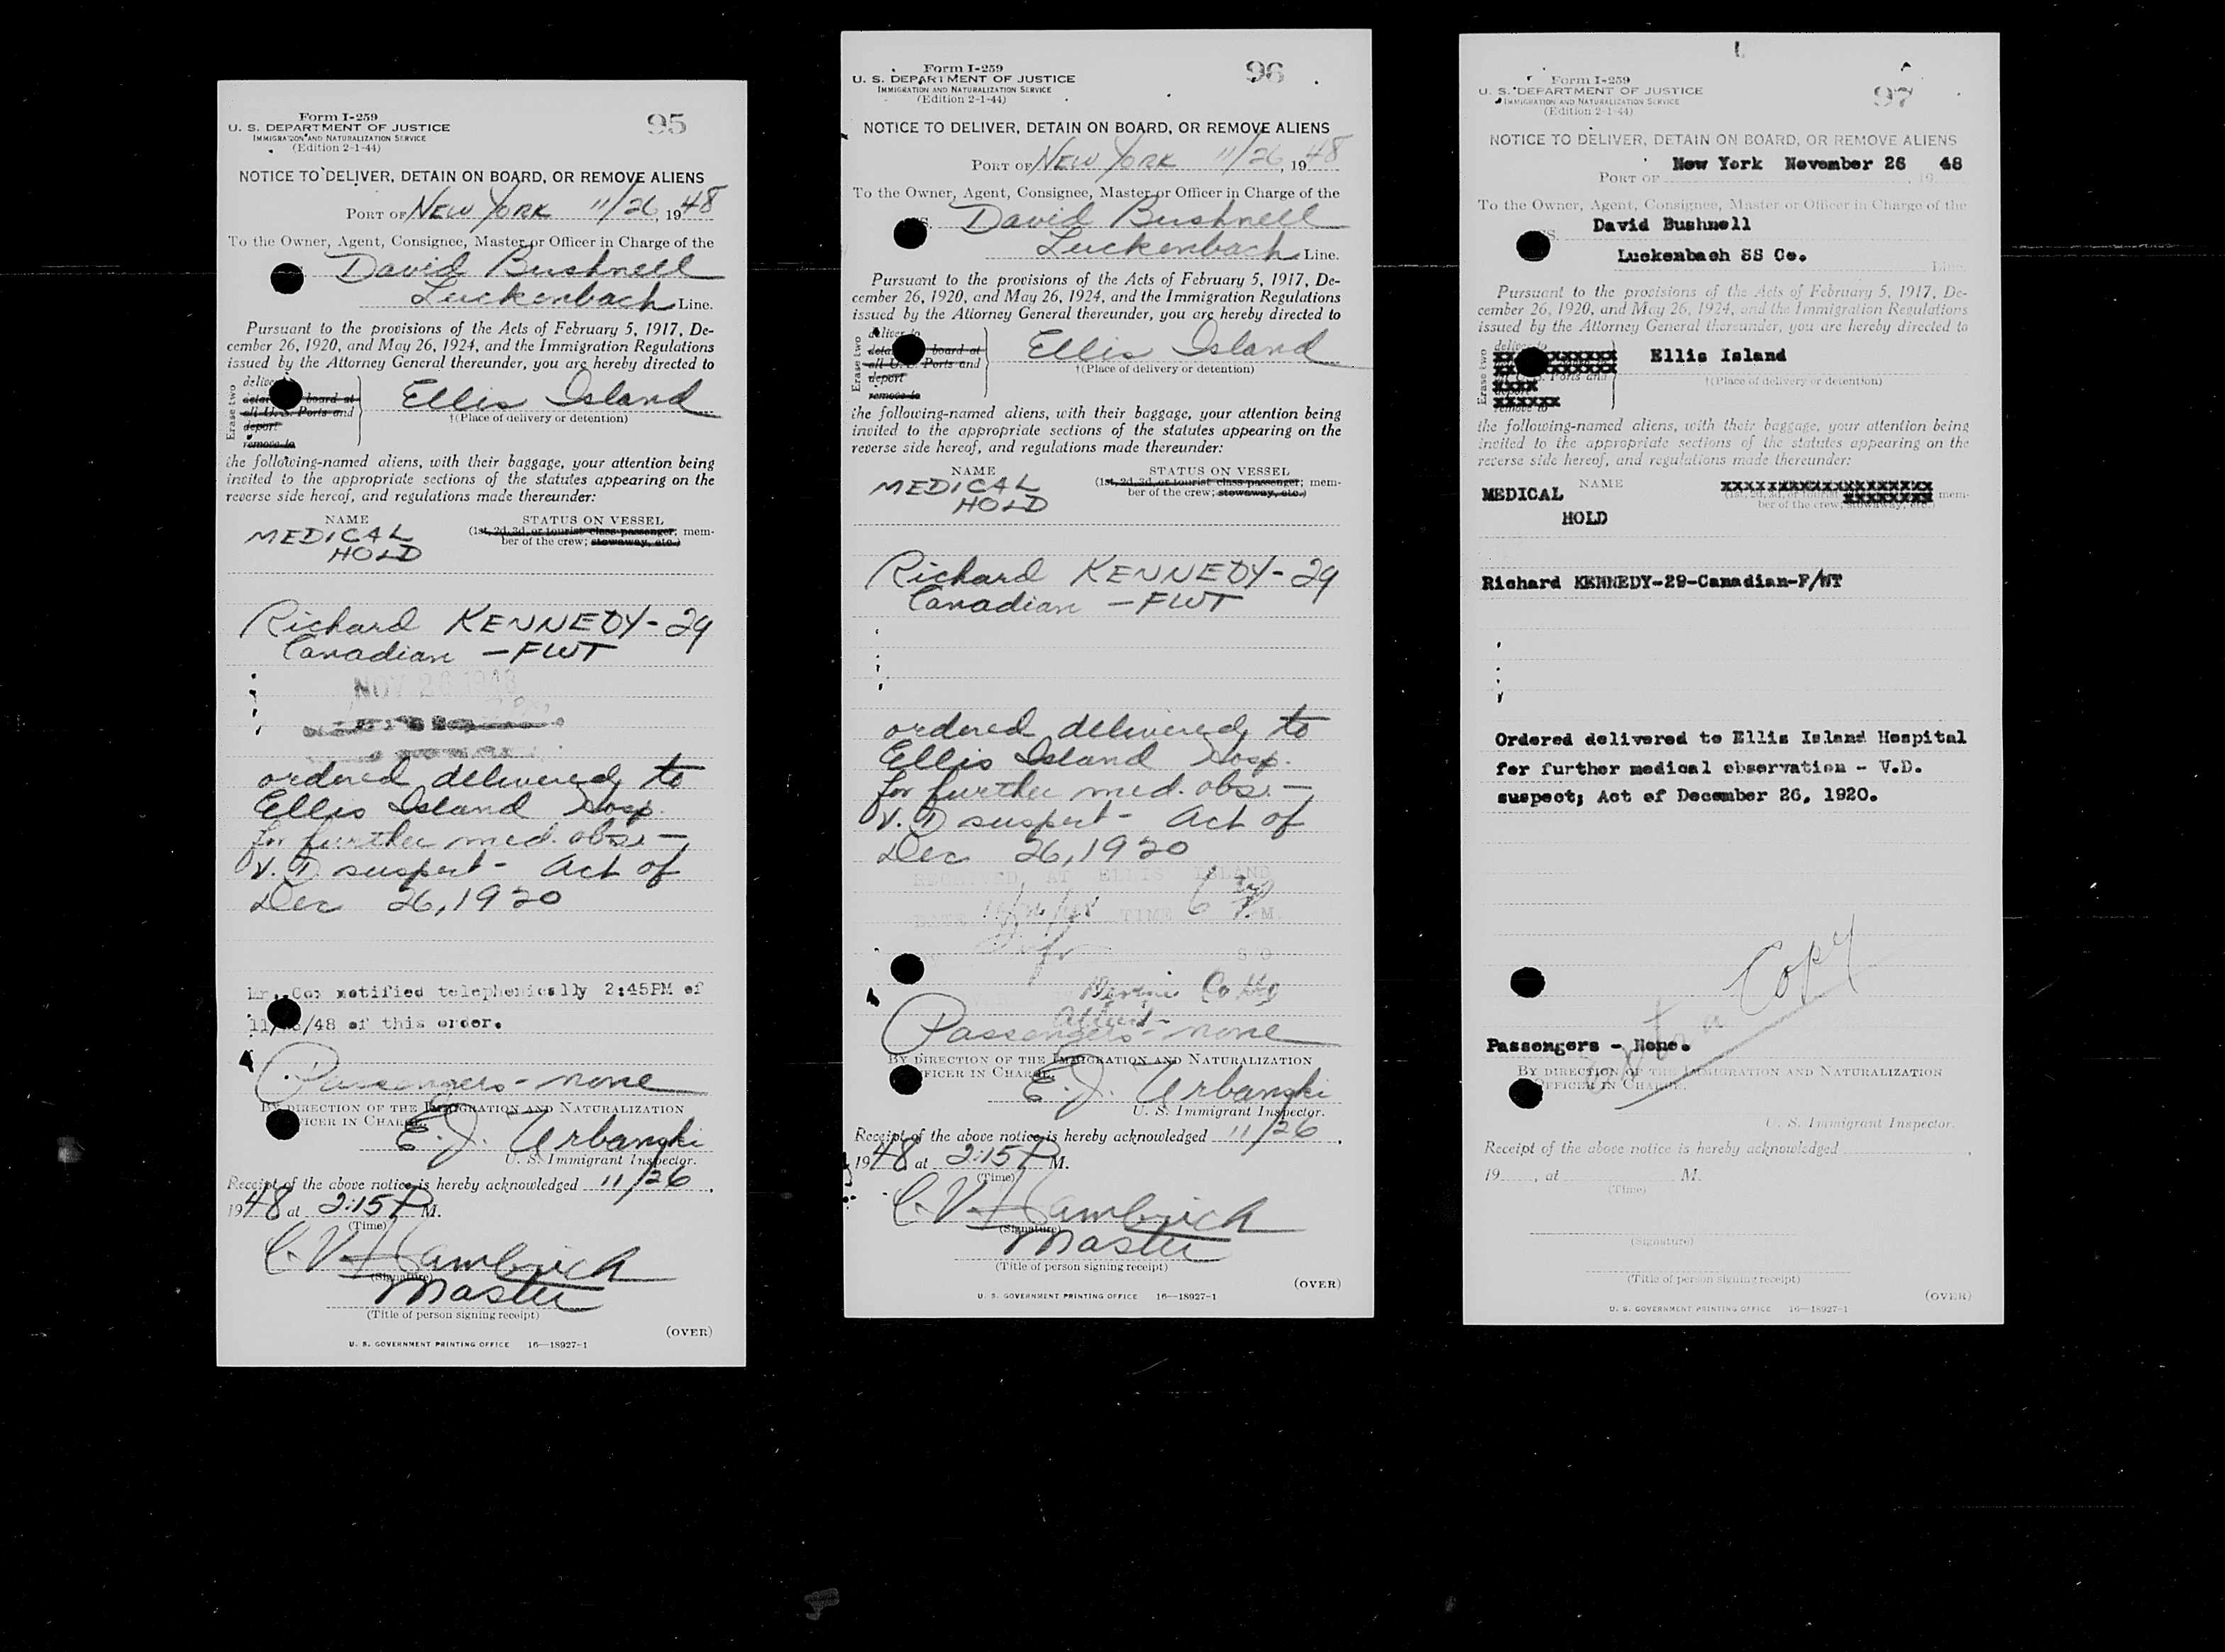 Form I-259
U. S. DEPARTMENT OF JUSTICE
IMMIGRATION AND NATURALIZATION SERVICE
(Edition 2-1-44)
95
NOTICE TO DELIVER, DETAIN ON BOARD, OR REMOVE ALIENS
PORT OF NEW YORK 11/26, 1948
To the Owner, Agent, Consignee, Master or Officer in Charge of the
David Bushnell
Luckenbach Line.
Pursuant to the provisions of the Acts of February 5, 1917, De-
cember 26, 1920, and May 26, 1924, and the Immigration Regulations
issued by the Attorney General thereunder, you are hereby directed to
Erase two
board at
all U. S. Ports and
deport
remove to
Ellis Island
†(Place of delivery or detention)
the following-named aliens, with their baggage, your attention being
invited to the appropriate sections of the statutes appearing on the
reverse side hereof, and regulations made thereunder:
NAME STATUS ON VESSEL
(1st, 2d, 3d, or tourist class passenger; mem-
ber of the crew; stowaway, etc.)
MEDICAL
HOLD
Richard KENNEDY-29
Canadian - FWT
NOV 26 1948
ordered delivered to
Ellis Island Hosp.
for further med. obs. -
V.D suspect - Act of
Dec 26, 1920
notified telephonically 2:45PM of
/48 of this order.
Passengers - none
BY DIRECTION OF THE IMMIGRATION AND NATURALIZATION
OFFICER IN CHARGE.
E. J. Urbanski
U. S. Immigrant Inspector.
Receipt of the above notice is hereby acknowledged 11/26,
1948 at 2:15 P M.
(Time)
C. V. Hambrick
(Signature)
Master
(Title of person signing receipt)
(OVER)
U. S. GOVERNMENT PRINTING OFFICE 16—18927-1
Form I-259
U. S. DEPARTMENT OF JUSTICE
IMMIGRATION AND NATURALIZATION SERVICE
(Edition 2-1-44)
96
NOTICE TO DELIVER, DETAIN ON BOARD, OR REMOVE ALIENS
PORT OF NEW YORK 11/26, 1948
To the Owner, Agent, Consignee, Master or Officer in Charge of the
David Bushnell
Luckenbach Line.
Pursuant to the provisions of the Acts of February 5, 1917, De-
cember 26, 1920, and May 26, 1924, and the Immigration Regulations
issued by the Attorney General thereunder, you are hereby directed to
Erase two
deliver to
board at
all U. S. Ports and
deport
remove to
Ellis Island
†(Place of delivery or detention)
the following-named aliens, with their baggage, your attention being
invited to the appropriate sections of the statutes appearing on the
reverse side hereof, and regulations made thereunder:
NAME STATUS ON VESSEL
(1st, 2d, 3d, or tourist class passenger; mem-
ber of the crew; stowaway, etc.)
MEDICAL
HOLD
Richard KENNEDY-29
Canadian - FWT
ordered delivered to
Ellis Island Hosp.
for further med. obs. -
V.D suspect - Act of
Dec 26, 1920
RECEIVED AT ELLIS ISLAND
DATE 11/26/48 TIME 6 P.M.
Passengers - none
BY DIRECTION OF THE IMMIGRATION AND NATURALIZATION
OFFICER IN CHARGE.
E. J. Urbanski
U. S. Immigrant Inspector.
Receipt of the above notice is hereby acknowledged 11/26,
1948 at 2:15 P M.
(Time)
C. V. Hambrick
(Signature)
Master
(Title of person signing receipt)
(OVER)
U. S. GOVERNMENT PRINTING OFFICE 16—18927-1
Form I-259
U. S. DEPARTMENT OF JUSTICE
IMMIGRATION AND NATURALIZATION SERVICE
(Edition 2-1-44)
97
NOTICE TO DELIVER, DETAIN ON BOARD, OR REMOVE ALIENS
PORT OF New York November 26, 19 48
To the Owner, Agent, Consignee, Master or Officer in Charge of the
David Bushnell
Luckenbach SS Co. Line.
Pursuant to the provisions of the Acts of February 5, 1917, De-
cember 26, 1920, and May 26, 1924, and the Immigration Regulations
issued by the Attorney General thereunder, you are hereby directed to
Erase two
deliver to
Ports and
remove to
Ellis Island
†(Place of delivery or detention)
the following-named aliens, with their baggage, your attention being
invited to the appropriate sections of the statutes appearing on the
reverse side hereof, and regulations made thereunder:
NAME
(1st, 2d, 3d, or tourist mem-
ber of the crew; stowaway, etc.)
MEDICAL
HOLD
Richard KENNEDY-29-Canadian-F/WT
Ordered delivered to Ellis Island Hospital
for further medical observation - V.D.
suspect; Act of December 26, 1920.
Extra Copy
Passengers - None.
BY DIRECTION OF THE IMMIGRATION AND NATURALIZATION
OFFICER IN CHARGE.
U. S. Immigrant Inspector.
Receipt of the above notice is hereby acknowledged
19 , at M.
(Time)
(Signature)
(Title of person signing receipt)
(OVER)
U. S. GOVERNMENT PRINTING OFFICE 16—18927-1